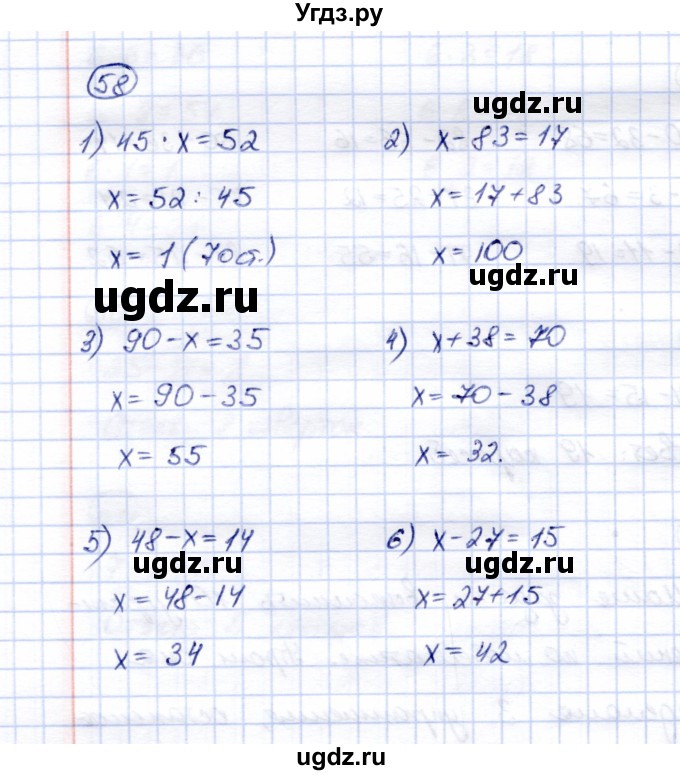 Угдз.ру
58
ugdz.ru
1) 45 · x = 52
2) x - 83 = 17
x = 52 : 45
x = 17 + 83
x = 1 (7 ост.)
x = 100
ugdz.ru
ugdz.ru
3) 90 - x = 35
4) x + 38 = 70
x = 90 - 35
x = 70 - 38
x = 55
x = 32.
5) 48 - x = 14
6) x - 27 = 15
ugdz.ru
ugdz.ru
x = 48 - 14
x = 27 + 15
x = 34
x = 42
ugdz.ru